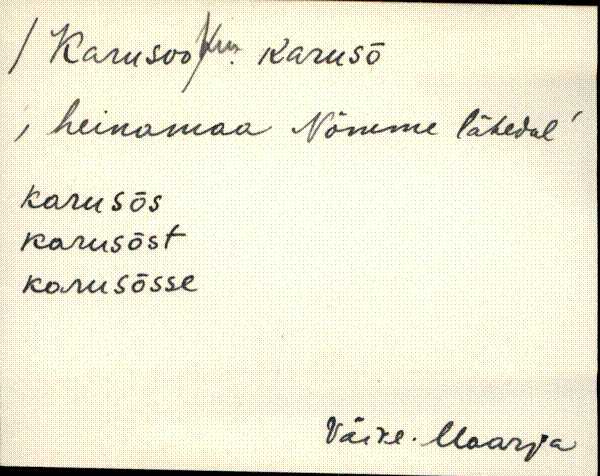 / Karusoo / karusō
, heinamaa Nõmme lähedal ʹ
karusōs
karusōst
karusōsse
Väike-Maarja